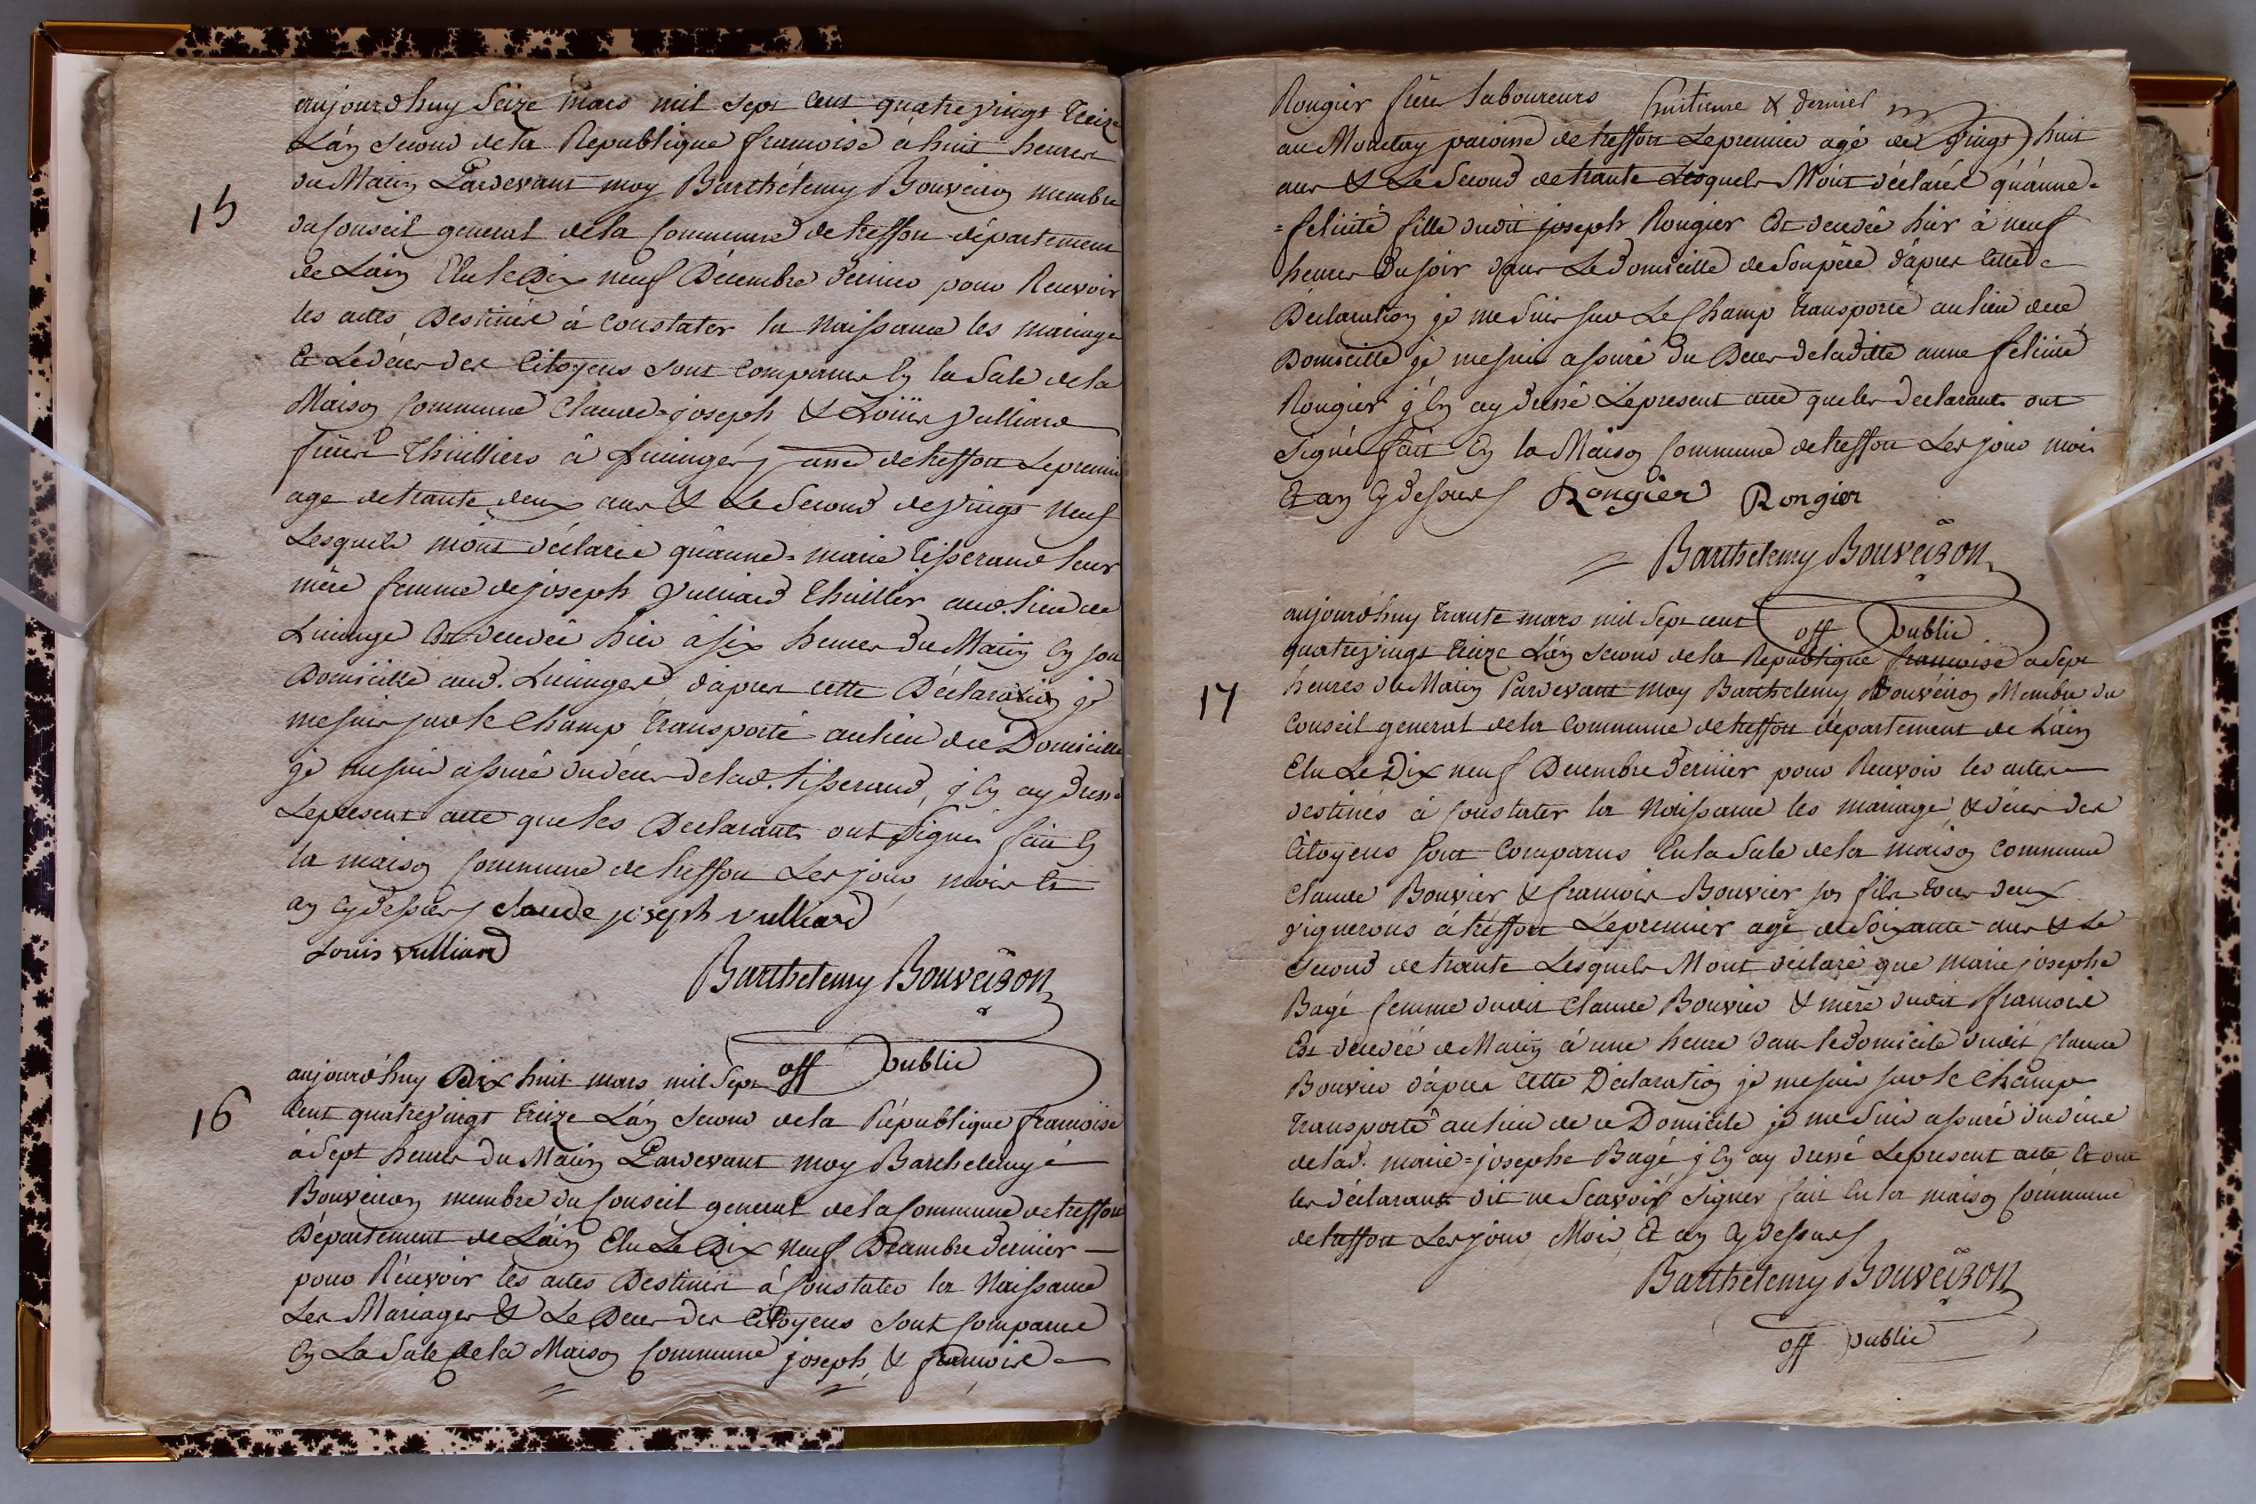 aujourdhuy Seize mars mil sept cent quatrevingt treize
L'an second dela Republique francoise à huit heures
du Matin Pardevant moy Barthélemy Bouveiron membre
15
du Conseil general dela Commune de treffort département
de Lain Elu le Dix neuf Décembre dernier pour Recevoir
les actes Destinés à constater la Naissance les mariages
Et Ledéces des Citoyens sont comparus En la Sale dela
Maison Commune Claude=joseph & Loüis Vulliard
freres Thuilliers à
de treffort Lepremier
age detrante deux ans & Le Second de Vingt Neuf
Lesquels m'ont déclaré qu'anne=marie Tisserand leur
mère femme de joseph Vulliard thuillier aud. lieu de
Est décedée hier à six heures du Matin En son
Domicille aud. d'apres cette Déclaration je
mesuis surle Champ Transporté aulieu dee Domicille
je mesuis assuré dudéces delad. tisserand, j'En ay dressé
Lepresent acte queles Declarants ont signé fait En
la maison Commune de treffort Les jour, mois Et
an Cydessus claude joseph vulliard
Louis vulliard
Barthelemy Bouveiron
off public
aujourd'huy Dix huit mars mil Sept
16
Cent quatrevingt treize L'an Second dela République francoise
à Sept heures du Matin Pardevant moy Barthelemy
Bouveiron membre du Conseil general dela Commune de treffort
Département de L'ain Elu Le Dix Neuf Décembre dernier
pour Récevoir les actes Destinés à Constater la Naissance
Les Mariages & Le Deces des Citoyens Sont Comparus
En La Sale dela Maison Commune joseph & francois
Rongier frere laboureurs huitieme & dernier
au Montay paroisse de treffort Lepremier agé de Vingt huit
ans & Le Second detrante Lesquels M'ont déclaré qu'anne=
=felicité fille dudit joseph Rongier Est decedée hier à neuf
heures Du soir dans Ledomicille deSonpere d'apres cette
Déclaration je meSuis sur Le Champ transporté aulieu dece
Domicille je mesuis assuré du Deces deladitte anne felicité
Rongier j'En ay dressé Lepresent acte queles declarants ont
signé fait En la Maison Commune de treffort Les jour mois
Et an Cydessus Rongier Rongier
Barthelemy Bouveiron
off public
aujourd'huy trante mars mil Sept cent
quatrevingt treize L'an Second dela Republique francoise a Sept
17
heures du Matin Pardevant moy Barthelemy Bouveiron Membre du
Conseil general dela Commune de treffort département de L'ain
Elu Le Dix neuf Decembre dernier pour Recevoir les actes
destinés à Constater la Naissance les mariage & déces des
Citoyens sont Comparus En la Sale dela maison Commune
Claude Bouvier & francois Bouvier son fils tous deux
vignerons à treffort Lepremier agé de Soixante ans & Le
Second de trante Lesquels Mont déclaré que marie josephe
Bagé femme dudit Claude Bouvier & mère dudit francois
Est decedée ce Matin à une heure dans le domicile dudit Claude
Bouvier d'apres cette Déclaration je mesuis surle Champ
Transporté aulieu de ce Domicile je meSuis assuré dudéces
delad. marie=josephe Bagé j'En ay dressé Lepresent acte Et ont
les déclarants dit ne Scavoir Signer fait En la maison Commune
detreffort Les jour Mois Et an Cydessus
Barthelemy Bouveiron
off public